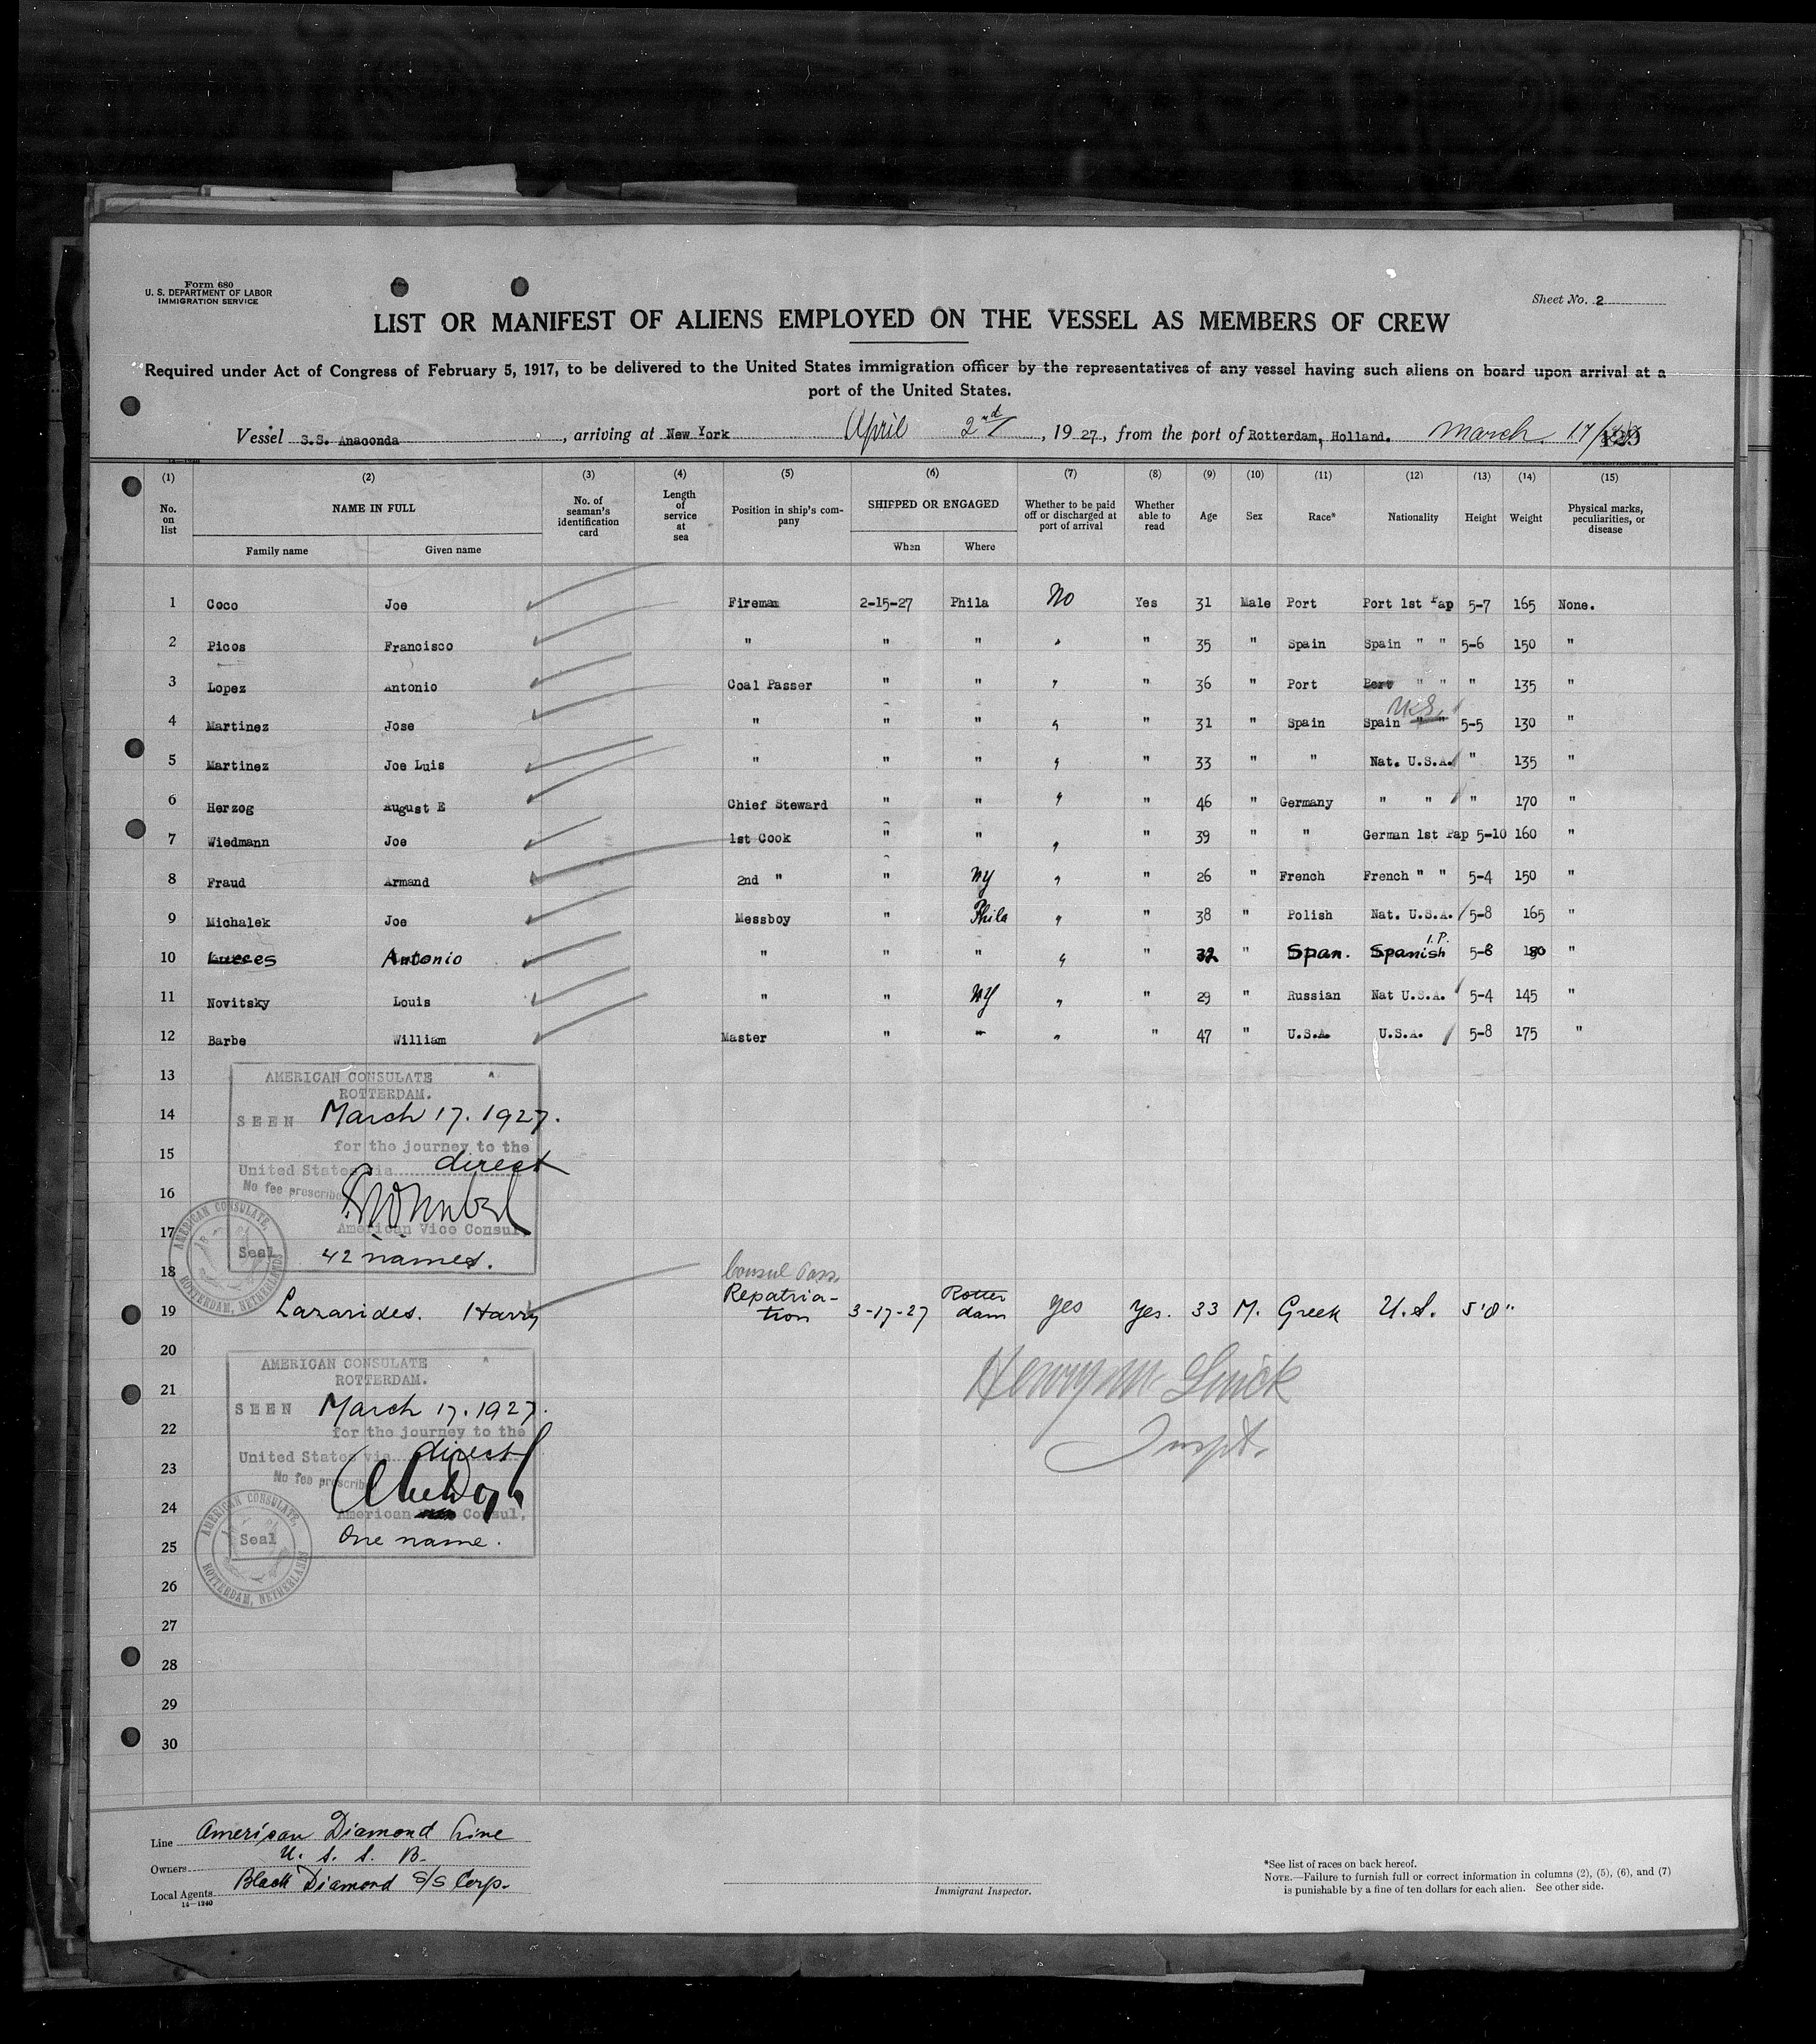 Form 680
U. S. DEPARTMENT OF LABOR
IMMIGRATION SERVICE
Sheet No. 2
LIST OR MANIFEST OF ALIENS EMPLOYED ON THE VESSEL AS MEMBERS OF CREW
Required under Act of Congress of February 5, 1917, to be delivered to the United States immigration officer by the representatives of any vessel having such aliens on board upon arrival at a
port of the United States.
Vessel S.S. Anaconda, arriving at New York April 2nd, 1927, from the port of Rotterdam, Holland. March 17/
(1) (2) (3) (4) (5) (6) (7) (8) (9) (10) (11) (12) (13) (14) (15)
No. on list NAME IN FULL Family name Given name No. of seaman's identification card Length of service at sea Position in ship's company SHIPPED OR ENGAGED When Where Whether to be paid off or discharged at port of arrival Whether able to read Age Sex Race* Nationality Height Weight Physical marks, peculiarities, or disease
1 Coco Joe Fireman 2-15-27 Phila No Yes 31 Male Port Port 1st Pap 5-7 165 None.
2 Picos Francisco " " " " " 35 " Spain Spain " " 5-6 150 "
3 Lopez Antonio Coal Passer " " " " 36 " Port Port " " " 135 "
4 Martinez Jose " " " " " 31 " Spain Spain " " U.S. 5-5 130 "
5 Martinez Joe Luis " " " " " 33 " " Nat. U.S.A. " 135 "
6 Herzog August E Chief Steward " " " " 46 " Germany " " " 170 "
7 Wiedmann Joe 1st Cook " " " " 39 " " German 1st Pap 5-10 160 "
8 Fraud Armand 2nd " " NY " " 26 " French French " " 5-4 150 "
9 Michalek Joe Messboy " Phila " " 38 " Polish Nat. U.S.A. 5-8 165 "
10 Antonio " " " " " 32 " Span. Spanish 1.P. 5-8 "
11 Novitsky Louis " " NY " " 29 " Russian Nat U.S.A. 5-4 145 "
12 Barbe William Master " " " " 47 " U.S.A. U.S.A. 5-8 175 "
13
AMERICAN CONSULATE
ROTTERDAM.
14
SEEN March 17. 1927.
for the journey to the
15
United States via direct
No fee prescribed
16
17
American Vice Consul,
Seal 42 names.
AMERICAN CONSULATE, ROTTERDAM, NETHERLANDS
18
Consul Pass.
19 Lazarides. Harry Repatriation 3-17-27 Rotterdam yes Yes. 33 M. Greek U.S. 5'8"
20
AMERICAN CONSULATE
ROTTERDAM.
21
SEEN March 17. 1927.
22
for the journey to the
United States via direct
23
No fee prescribed
24
American Consul,
25
Seal One name.
AMERICAN CONSULATE, ROTTERDAM, NETHERLANDS
Inspt.
26
27
28
29
30
Line American Diamond Line
Owners U. S. S. B.
Local Agents Black Diamond S/S Corp.
14—1240
Immigrant Inspector.
*See list of races on back hereof.
NOTE.—Failure to furnish full or correct information in columns (2), (5), (6), and (7)
is punishable by a fine of ten dollars for each alien. See other side.